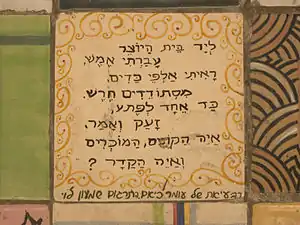 לְיַד בֵּית הַיּוֹצֵר
עָבַרְתִּי אֶמֶשׁ,
רָאִיתִי אַלְפֵי כַּדִּים,
מִסְתּוֹדְדִים חֶרֶשׁ.
כַּד אֶחָד לְפֶתַע,
זָעַק וְאָמַר,
אֵיה הַקּוֹנִים, הַמּוֹכְרִים
וְאֵיה הַקַּדָּר ?
רבעיאת של עומר כיאם בתרגום שמעון לוי